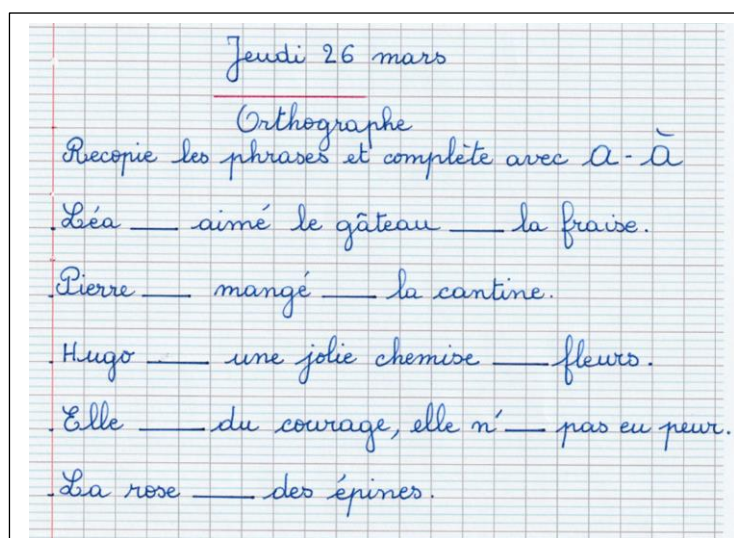 Jeudi 26 mars
Orthographe
Recopie les phrases et complète avec a - à
.Léa ___ aimé le gâteau ___ la fraise.
.Pierre ___ mangé ___ la cantine.
.Hugo ___ une jolie chemise ___ fleurs.
.Elle ___ du courage, elle n'___ pas eu peur.
.La rose ___ des épines.